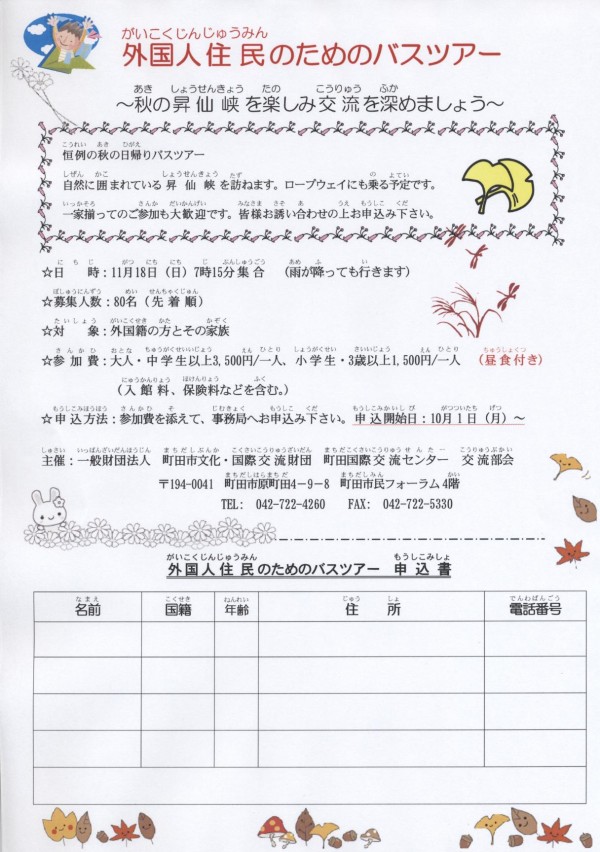 がいこくじんじゅうみん
外国人住民のためのバスツアー
あき しょうせんきょう たの こうりゅう ふか
～秋の昇仙峡を楽しみ交流を深めましょう～
こうれい あき ひがえ
恒例の秋の日帰りバスツアー
しぜん かこ しょうせんきょう たず の よてい
自然に囲まれている昇仙峡を訪ねます。ロープウェイにも乗る予定です。
いっかそろ さんか だいかんげい みなさま さそ あ うえ もうしこ くだ
一家揃ってのご参加も大歓迎です。皆様お誘い合わせの上お申込み下さい。
にち じ がつ にち にち じ ぶんしゅうごう あめ ふ い
☆日 時：11月18日（日）7時15分集合 （雨が降っても行きます）
ぼしゅうにんずう めい せんちゃくじゅん
☆募集人数：80名（先着順）
たいしょう がいこくせき かた かぞく
☆対 象：外国籍の方とその家族
さんかひ おとな ちゅうがくせいいじょう えん ひとり しょうがくせい さいいじょう えん ひとり ちゅうしょくつ
☆参加費：大人・中学生以上3,500円/一人、小学生・3歳以上1,500円/一人 （昼食付き）
にゅうかんりょう ほけんりょう ふく
（入館料、保険料などを含む。）
もうしこみほうほう さんかひ そ じむきょく もうしこ くだ もうしこみかいしび がつついたち げつ
☆申込方法：参加費を添えて、事務局へお申込み下さい。申込開始日：10月1日（月）～
しゅさい いっぱんざいだんほうじん まちだしぶんか こくさいこうりゅうざいだん まちだこくさいこうりゅうせんたー こうりゅうぶかい
主催：一般財団法人 町田市文化・国際交流財団 町田国際交流センター 交流部会
まちだしはらまちだ まちだしみん かい
〒194-0041 町田市原町田4－9－8 町田市民フォーラム4階
TEL: 042-722-4260 FAX: 042-722-5330
がいこくじんじゅうみん もうしこみしょ
外国人住民のためのバスツアー 申込書
なまえ こくせき ねんれい じゅう しょ でんわばんごう
名前 国籍 年齢 住 所 電話番号